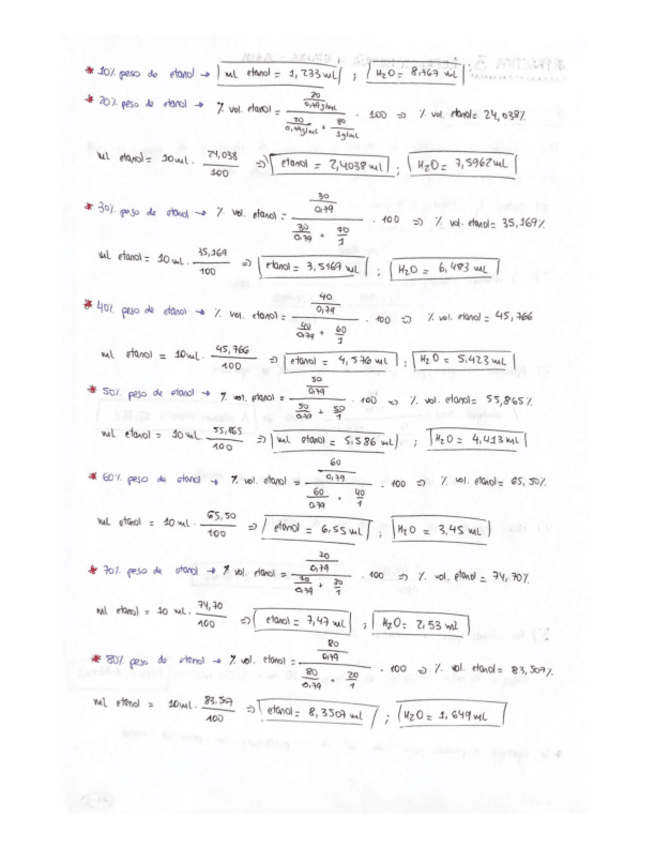 * 10% peso de etanol → ml etanol = 1,233 ml ; H2O = 8.767 ml
* 20% peso de etanol → % vol. etanol = (20 / 0,79 g/ml) / (20 / 0,79 g/ml + 80 / 1 g/ml) · 100 ⇒ % vol. etanol = 24,038%
ml etanol = 10 ml · 24,038 / 100 ⇒ etanol = 2,4038 ml ; H2O = 7,5962 ml
* 30% peso de etanol → % vol. etanol = (30 / 0,79) / (30 / 0,79 + 70 / 1) · 100 ⇒ % vol. etanol = 35,169%
ml etanol = 10 ml · 35,169 / 100 ⇒ etanol = 3,5169 ml ; H2O = 6,483 ml
* 40% peso de etanol → % vol. etanol = (40 / 0,79) / (40 / 0,79 + 60 / 1) · 100 ⇒ % vol. etanol = 45,766
ml etanol = 10 ml · 45,766 / 100 ⇒ etanol = 4,576 ml ; H2O = 5.423 ml
* 50% peso de etanol → % vol. etanol = (50 / 0,79) / (50 / 0,79 + 50 / 1) · 100 ⇒ % vol. etanol = 55,865%
ml etanol = 10 ml · 55,865 / 100 ⇒ ml etanol = 5.586 ml ; H2O = 4,413 ml
* 60% peso de etanol → % vol. etanol = (60 / 0,79) / (60 / 0,79 + 40 / 1) · 100 ⇒ % vol. etanol = 65,50%
ml etanol = 10 ml · 65,50 / 100 ⇒ etanol = 6,55 ml ; H2O = 3,45 ml
* 70% peso de etanol → % vol. etanol = (70 / 0,79) / (70 / 0,79 + 30 / 1) · 100 ⇒ % vol. etanol = 74,70%
ml etanol = 10 ml · 74,70 / 100 ⇒ etanol = 7,47 ml ; H2O = 2,53 ml
* 80% peso de etanol → % vol. etanol = (80 / 0,79) / (80 / 0,79 + 20 / 1) · 100 ⇒ % vol. etanol = 83,507%
ml etanol = 10 ml · 83,507 / 100 ⇒ etanol = 8,3507 ml ; H2O = 1,649 ml